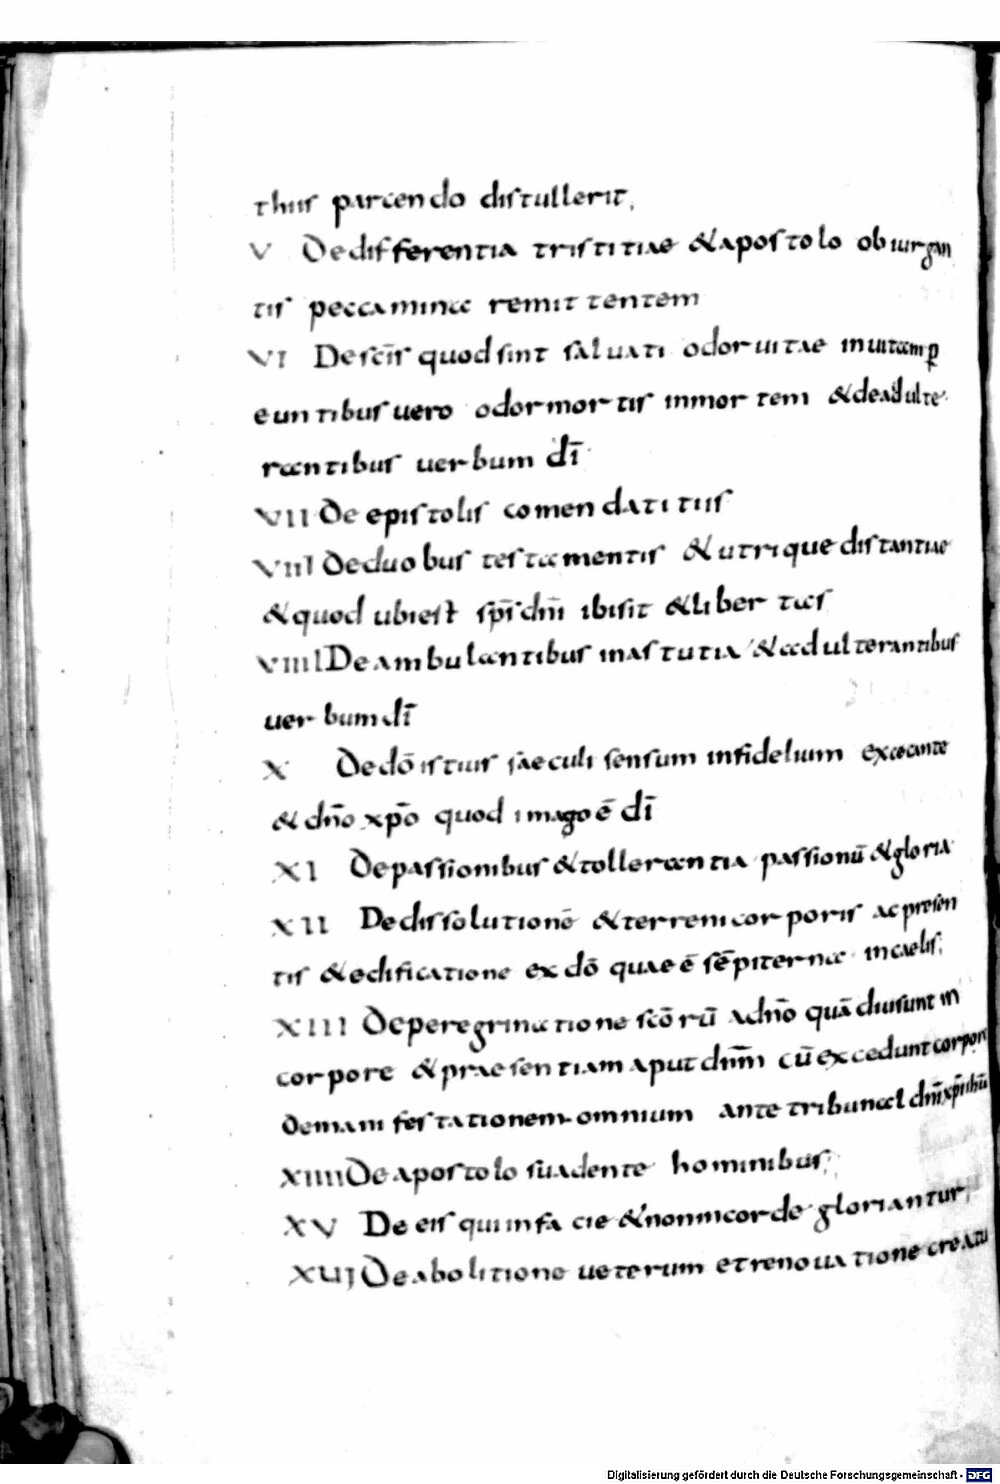 thiis parcendo distullerit;
V De differentia tristitiae & apostolo obiurgan
tis peccamina remittentem
VI De sc̄is quod sint saluati odor uitae in uitam p̱
euntibus uero odor mortis in mortem & de adulte
rantibus uerbum dī
VII De epistolis comendatitiis
VIII De duobus testamentis & utrique distantiae
& quod ubi est sp̄s dn̄i ibi sit & libertas
VIIII De ambulantibus in astutia & adulterantibus
uerbum dī
X De dō istius saeculi sensum infidelium excecante
& dn̄o xp̄o quod imago ē dī
XI De passionibus & tollerantia passionū & gloria
XII De dissolutionē & terreni corporis ac presen
tis & edificatione ex dō quae ē sēpiterna in caelis;
XIII De peregrinatione scōrū a dn̄o quā diu sunt in
corpore & praesentiam aput dn̄m cū excedunt corpore
de manifestationem omnium ante tribunal dn̄i xp̄i
XIIII De apostolo suadente hominibus;
XV De eis qui in facie & non in corde gloriantur;
XVI De abolitione ueterum et renouatione creatu
Digitalisierung gefördert durch die Deutsche Forschungsgemeinschaft - DFG